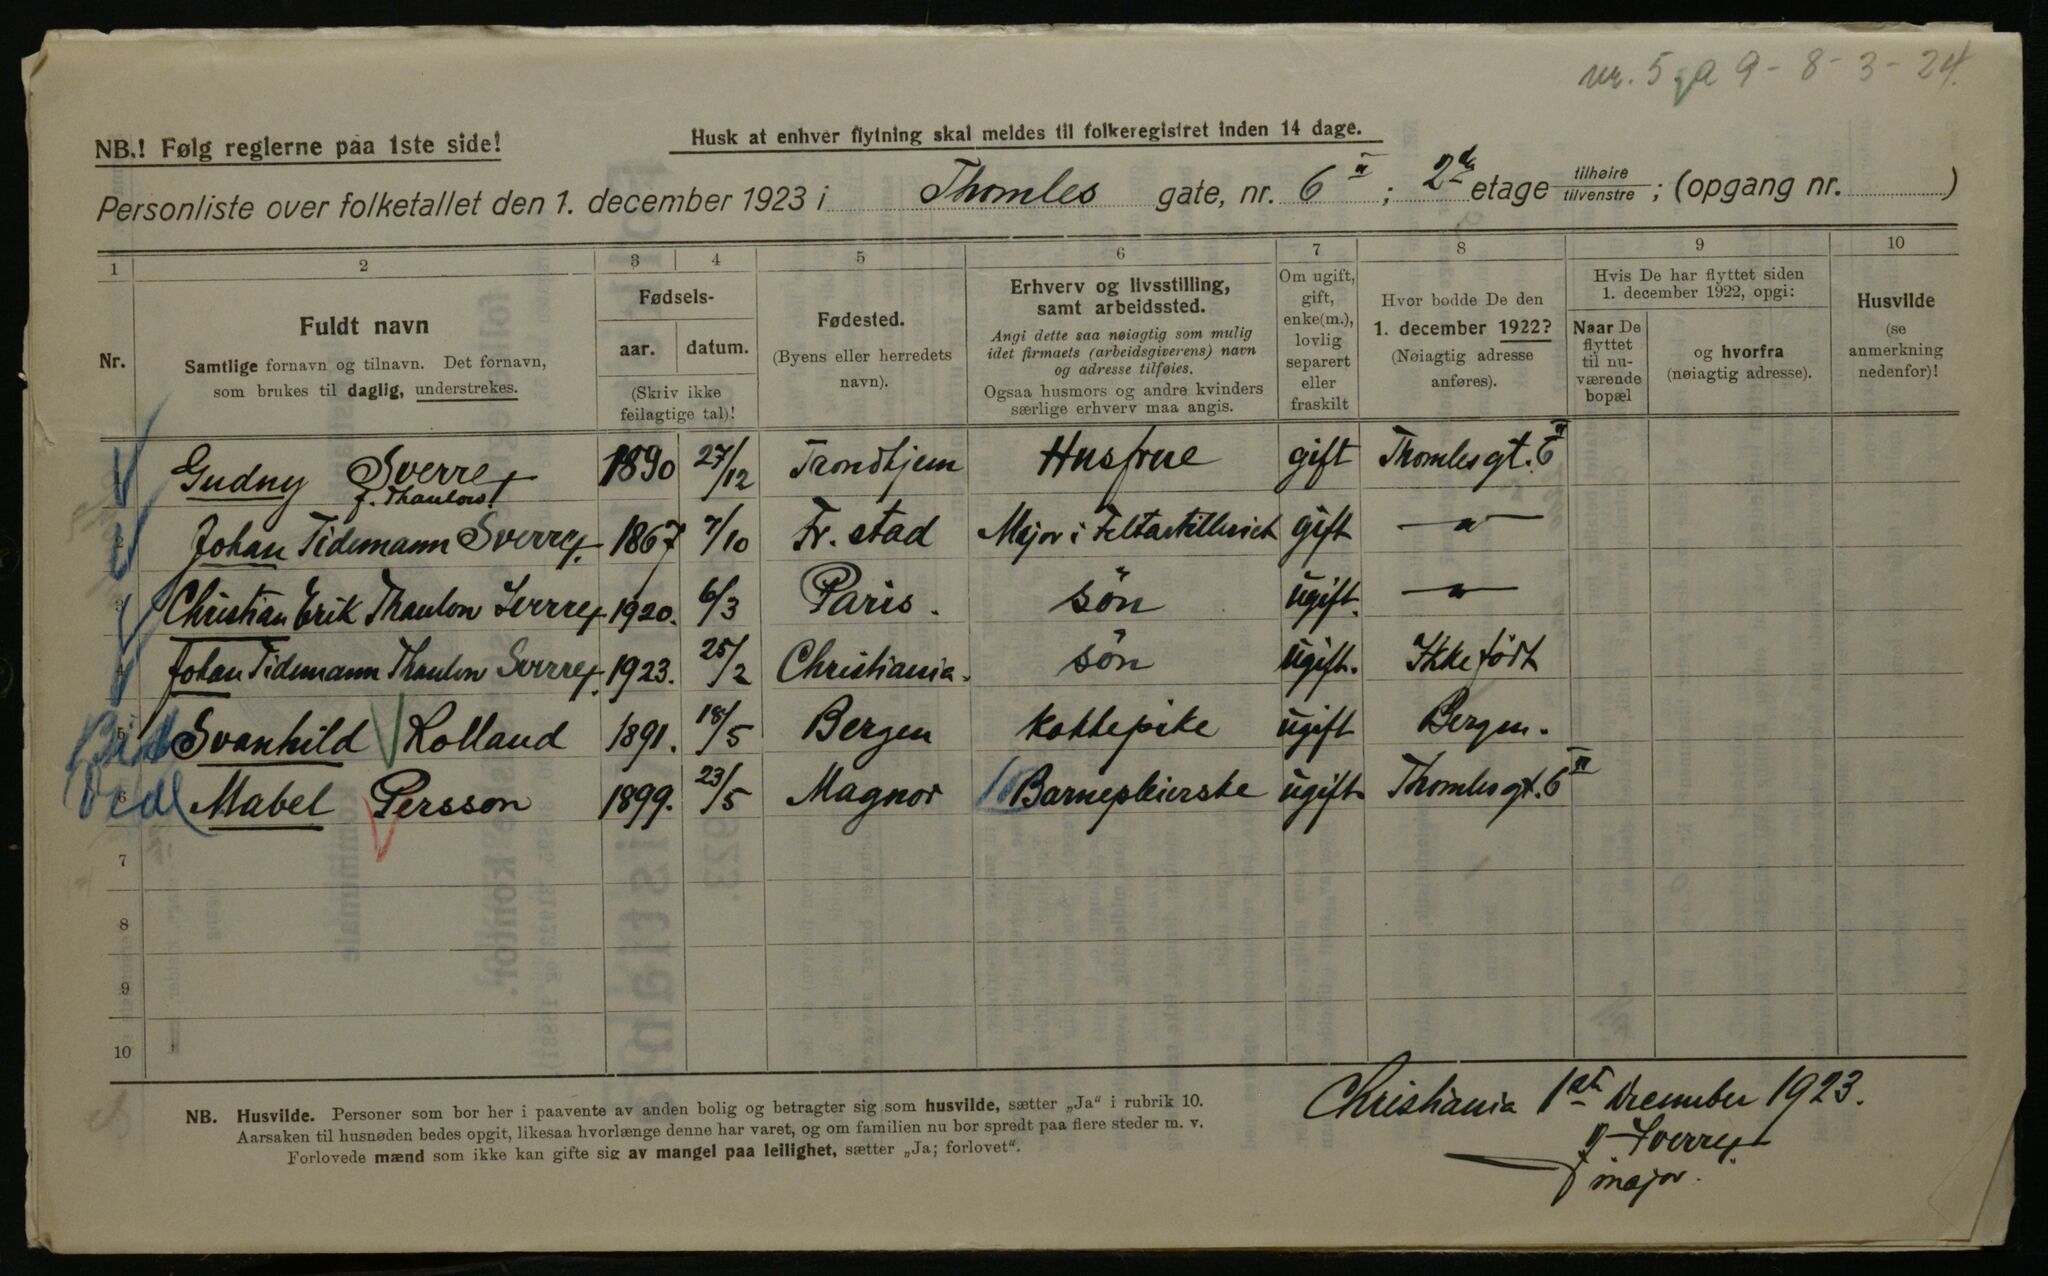 nr. 5 9-8-3-24.
NB.! Følg reglerne paa 1ste side!
Husk at enhver flytning skal meldes til folkeregistret inden 14 dage.
Personliste over folketallet den 1. december 1923 i Thomles gate, nr. 6 II ; 2den etage tilhøire tilvenstre ; (opgang nr. )
1 2 3 4 5 6 7 8 9 10
Nr.
Fuldt navn
Samtlige fornavn og tilnavn. Det fornavn,
som brukes til daglig, understrekes.
Fødsels-
aar. datum.
(Skriv ikke
feilagtige tal)!
Fødested.
(Byens eller herredets
navn).
Erhverv og livsstilling,
samt arbeidssted.
Angi dette saa nøiagtig som mulig
idet firmaets (arbeidsgiverens) navn
og adresse tilføies.
Ogsaa husmors og andre kvinders
særlige erhverv maa angis.
Om ugift,
gift,
enke(m.),
lovlig
separert
eller
fraskilt
Hvor bodde De den
1. december 1922?
(Nøiagtig adresse
anføres).
Hvis De har flyttet siden
1. december 1922, opgi:
Naar De
flyttet
til nu-
værende
bopæl
og hvorfra
(nøiagtig adresse).
Husvilde
(se
anmerkning
nedenfor)!
Gudny Sverre f. Thaulow 1890 27/12 Trondhjem Husfrue gift Thomlesgt. 6 II
Johan Tidemann Sverre 1867 7/10 Fr.stad Major i Feltartilleriet gift —"—
3 Christian Erik Thaulow Sverre 1920. 6/3 Paris. Sön ugift. —"—
Johan Tidemann Thaulow Sverre 1923. 25/2 Christiania. Sön ugift. Ikke födt
5 Svanhild Kolland 1891. 18/5 Bergen kokkepike ugift Bergen.
6 Mabel Persson 1899. 23/5 Magnor Barnepleierske ugift Thomlesgt. 6 II
7
8
9
10
NB. Husvilde. Personer som bor her i paavente av anden bolig og betragter sig som husvilde, sætter „Ja" i rubrik 10.
Aarsaken til husnøden bedes opgit, likesaa hvorlænge denne har varet, og om familien nu bor spredt paa flere steder m. v.
Forlovede mænd som ikke kan gifte sig av mangel paa leilighet, sætter „Ja; forlovet".
Christiania 1ste December 1923.
J Sverre
major.